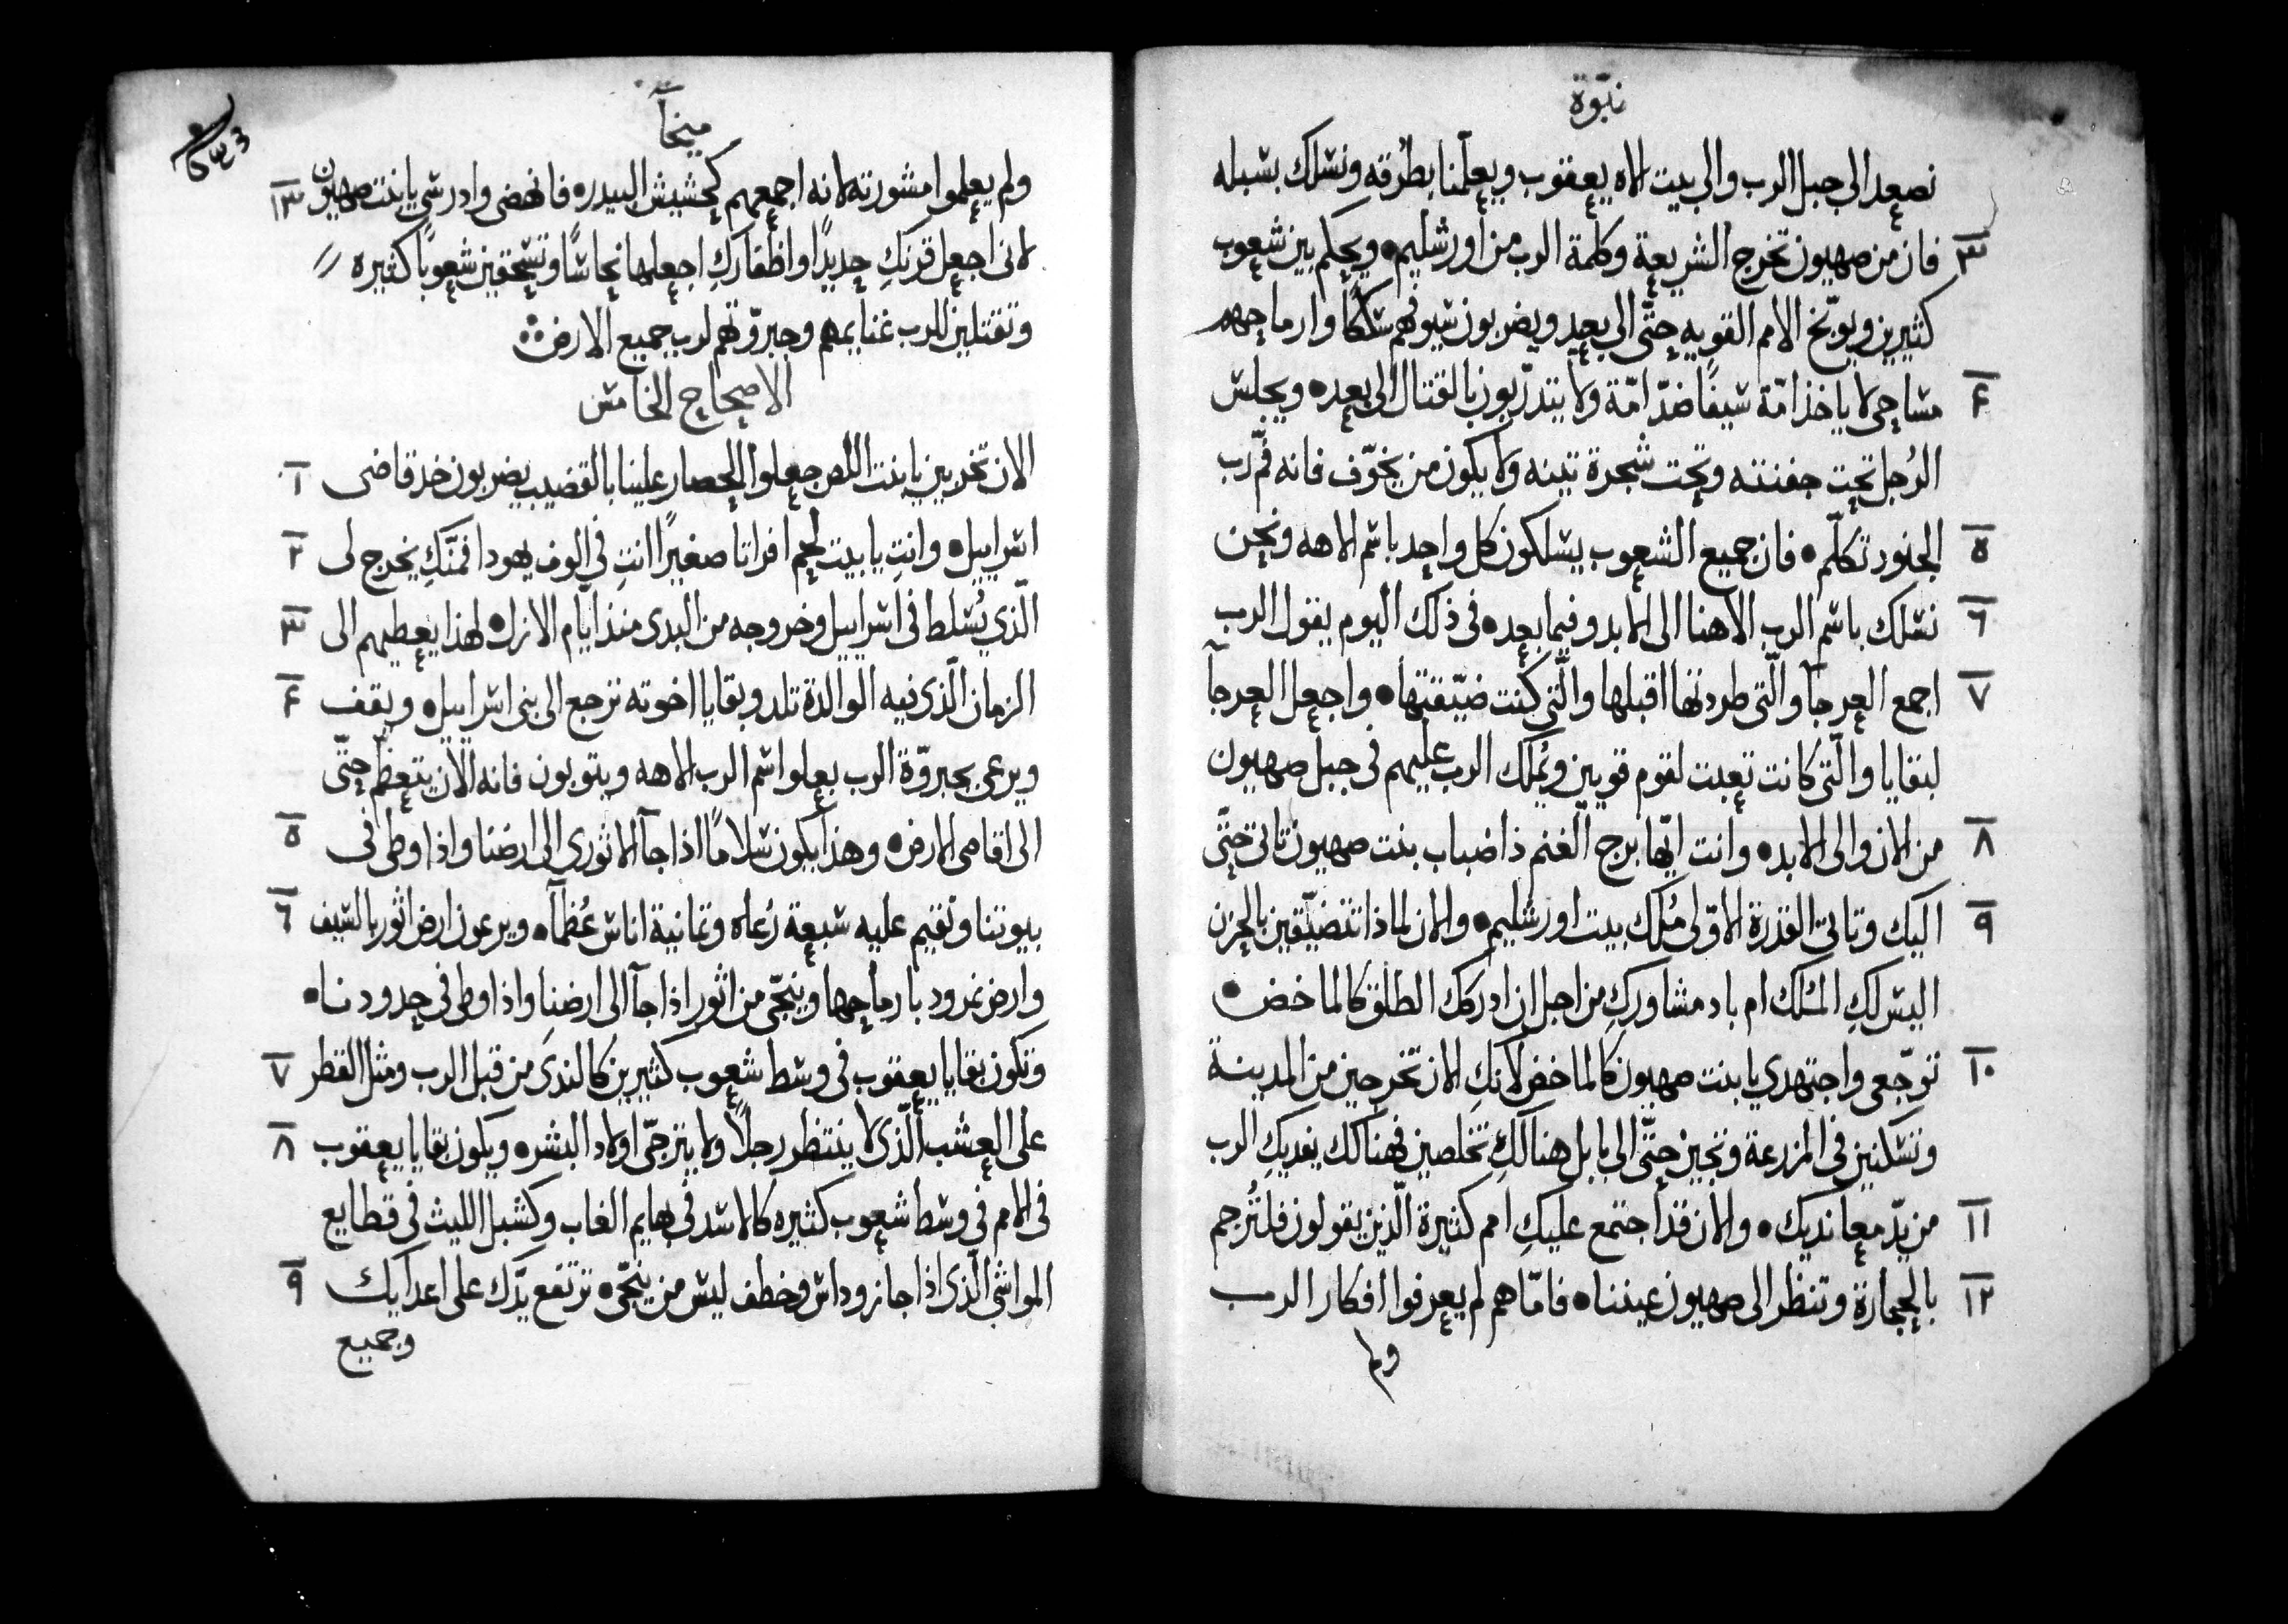 نبوّة
نصعد الى جبل الرب والى بيت الاه يعقوب ويعلّمنا بطُرقه ونسلك بسبله
٣ فان من صهيون تخرج الشريعة وكلمة الرب من اورشليم • ويحكم بين شعوب
كثيرين ويوبّخ الامم القويه حتّى الى بعيد ويضربون سيوفهم سككًا وارماحهم
٤ مساحى لا ياخذ امّة سيفًا ضدّ امّة ولا يتدرّبون بالقتال الى بعد • ويجلس
الرُجل تحت جفنته وتحت شجرة تينه ولا يكون من يخوّف فانه فُم رب
٥ الجنود تكلّم • فان جميع الشعوب يسلكون كل واحد باسم الاهه ونحن
٦ نسلك باسم الرب الاهنا الى الابد وفيما بعد • فى ذلك اليوم يقول الرب
٧ اجمع العرجآ والّتى طردتها اقبلها والّتى كنت ضيّقتها • واجعل العرجآ
لبقايا والّتى كانت تعبت لقوم قويين ويُملك الرب عليهم فى جبل صهيون
٨ من الان والى الابد • وانت ايّها برج الغنم ذا ضباب بنت صهيون تاتى حتّى
٩ اليك وتاتى القدرة الاوّلى مُلك بيت اورشليم • والان لماذا تتضيّقين بالحزن
اليس لكِ المُلك ام باد مشاوركِ من اجل ان ادركك الطلق كالماخض •
١٠ توجّعى واجتهدي يا بنت صهيون كالماخض لانكِ الان تخرجين من المدينة
وتسكنين فى المزرعة وتجين حتّى الى بابل هنالكِ تخلصين فهنالك يفديكِ الرب
١١ من يدّ معانديك • والان قد اجتمع عليكِ امم كثيرة الّذين يقولون فلتُرجم
١٢ بالحجارة وتنظر الى صهيون عيننا • فامّا هم لم يعرفوا افكار الرب
ولم
ميخآ
ولم يعلموا مشورته لانه اجمعهم كحشيش البيدر • فانهضى وادرسى يا بنت صهيون ١٣
لانى اجعل قرنكِ حديدًا واظفاركِ اجعلها نحاسًا وتسحقين شعوبًا كثيره
وتقتلين للرب غنايمهم وجبروّتهم لرب جميع الارض
الاصحاح الخامس
الان تخربين يا بنت اللص جعلوا الحصار علينا بالقضيب يضربون خد قاضى ١
اسراييل • وانتِ يا بيت لحم افراتا صغيرًا انتِ فى الوف يهودا فمنّكِ يخرج لى ٢
الّذي يُسلط فى اسراييل وخروجه من البدى منذ ايّام الازل • لهذا يعطيهم الى ٣
الزمان الّذى فيه الوالدة تلد وبقايا اخوته ترجع الى بنى اسراييل • ويقف ٤
ويرعى بجبروّة الرب بعلو اسم الرب الاهه ويتوبون فانه الان يتعظّم حتّى
الى اقاصى الارض • وهذا يكون سلامًا اذا جآ الاثوري الى ارضنا واذا وطى فى ٥
بيوتنا ونقيم عليه سبعة رُعاه وثمانية اناس عُظمآ • ويرعون ارض اثور بالسيف ٦
وارض نمرود بارماحها وينجّى من اثور اذا جآ الى ارضنا واذا وطى فى حدودنا •
وتكون بقايا يعقوب فى وسط شعوب كثيرين كالندى من قبل الرب ومثل القطر ٧
على العشب الّذى لا ينتظر رجلًا ولا يترجّى اولاد البشر • ويكون بقايا يعقوب ٨
فى الامم فى وسط شعوب كثيره كالاسد فى بهايم الغاب وكشبل الليث فى قطايع
المواشى الّذى اذا جاز وداس وخطف ليس من ينجّى • ترتفع يدّك على اعدايك ٩
وجميع